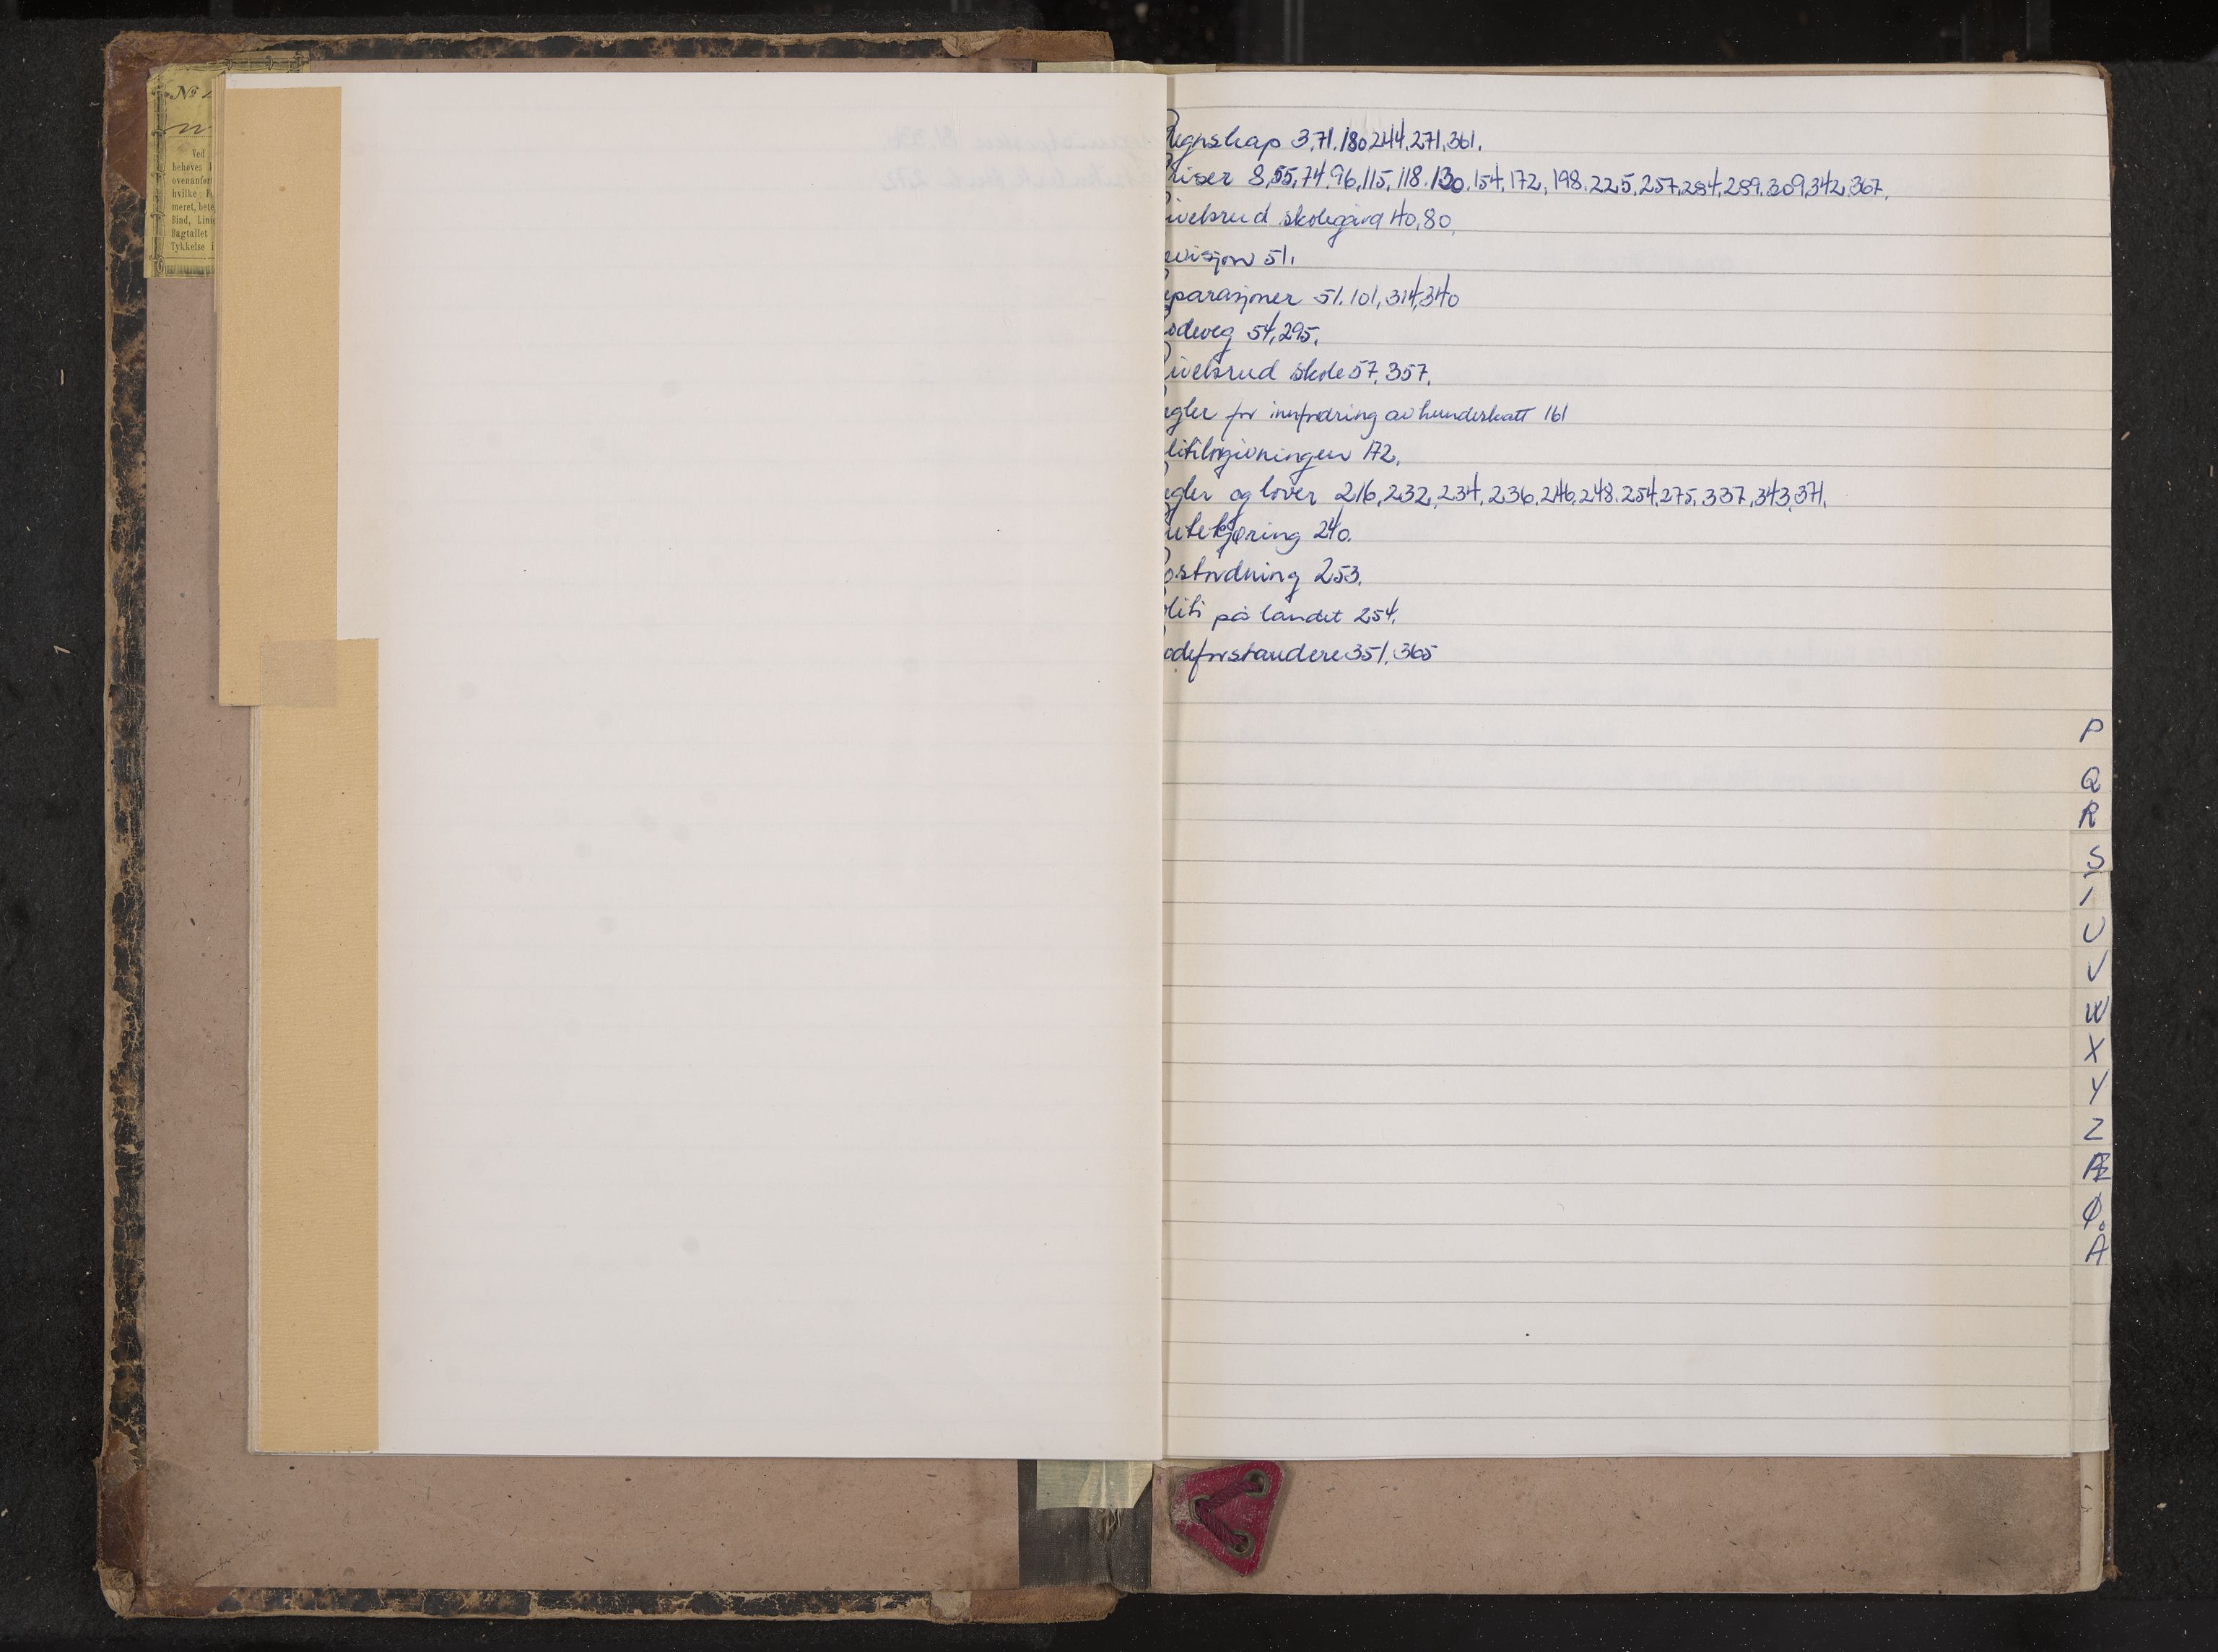 Nº
Ved
behøves
ovenanfør
hvilke
meret, bete
Bind, Lini
Bagtallet
Tykkelse
Regnskap 3,71.180 244.271,361.
riser 8,55,74,96,115,118.130.154,172,198.225.257,284,289.309,342,367.
ivelsrud skolegård 40,80.
evisjon 51.
eparasjoner 51.101,314,340
odeveg 54,295.
ivelsrud skole 57,357.
egler for innfordring av hundeskatt 161
172.
egler og lover 216,232,234,236,246,248.254,275,337,343,371.
utekjøring 240.
ostordning 253.
oliti på landet 254.
odeforstandere 351,365
P
Q
R
S
U
V
W
X
Y
Z
Æ
Ø
Å